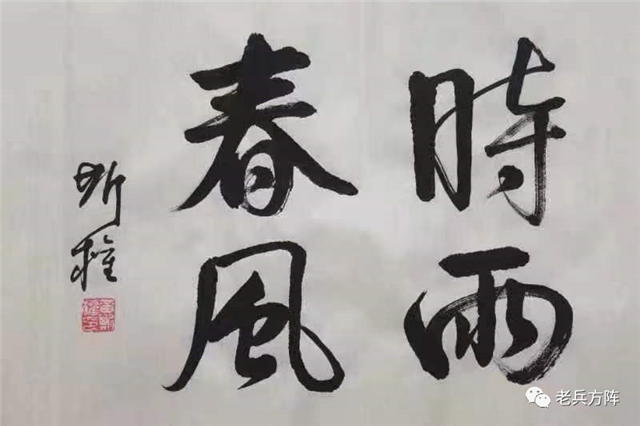 時雨
春風
老兵方阵